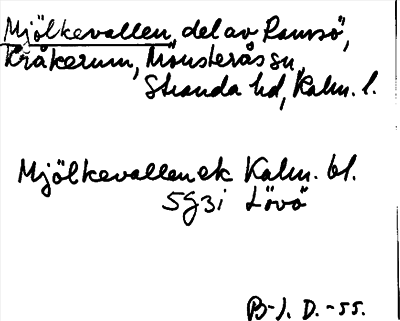 Mjölkevallen, del av Ramsö,
Kråkerum, Mönsterås sn,
Stranda hd, Kalm. l.
Mjölkevallen ek Kalm. bl.
5G3i Lövö
B-J. D. -55.